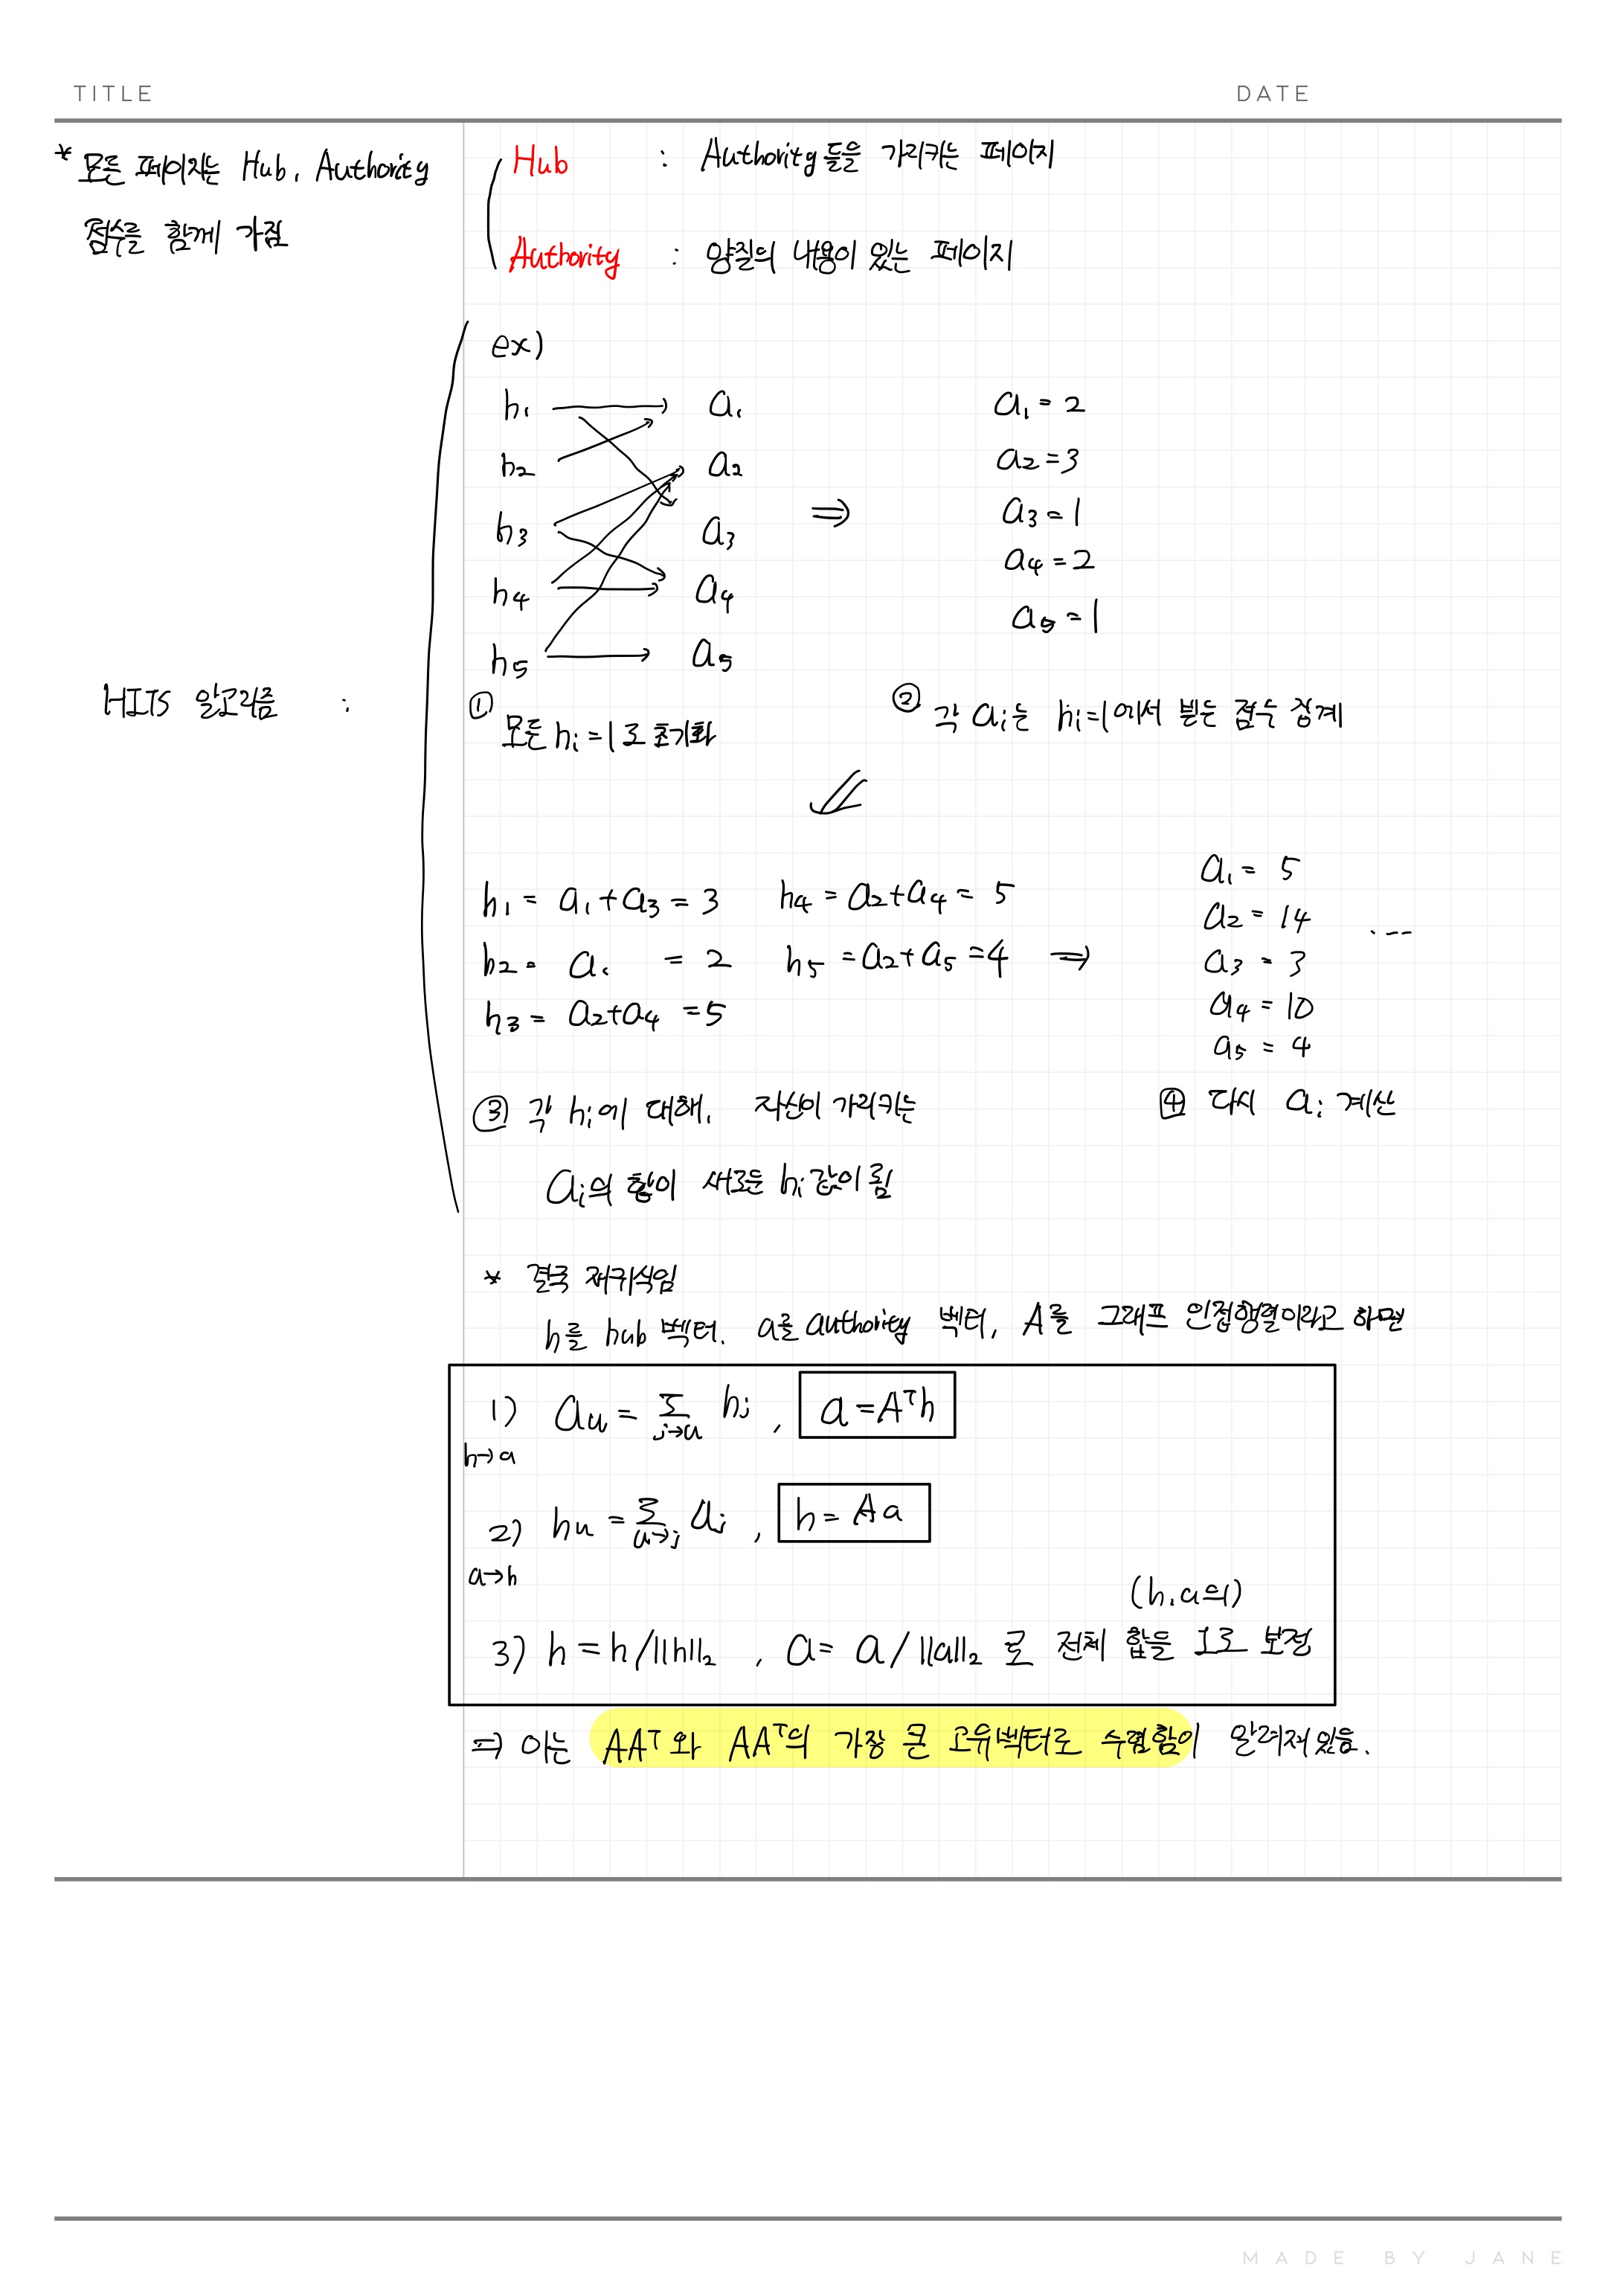 TITLE DATE
* 모든 페이지는 Hub, Authority
점수를 함께 가짐
Hub : Authority들을 가리키는 페이지
Authority : 양질의 내용이 있는 페이지
HITS 알고리즘 :
ex)
h₁ a₁ a₁ = 2
h₂ a₂ a₂ = 3
h₃ a₃ ⇒ a₃ = 1
h₄ a₄ a₄ = 2
h₅ a₅ a₅ = 1
① 모든 hᵢ = 1로 초기화
② 각 aᵢ는 hᵢ=1에서 받은 점수 집계
h₁ = a₁ + a₃ = 3 h₄ = a₂ + a₄ = 5
h₂ = a₁ = 2 h₅ = a₂ + a₅ = 4 ⇒
h₃ = a₂ + a₄ = 5
a₁ = 5
a₂ = 14 ....
a₃ = 3
a₄ = 10
a₅ = 4
③ 각 hᵢ에 대해, 자신이 가리키는
aᵢ의 합이 새로운 hᵢ값이 됨
④ 다시 aᵢ 계산
* 결국 재귀식임
h를 hub 벡터, a를 authority 벡터, A를 그래프 인접행렬이라고 하면
1) aᵤ = Σ_{j→u} hⱼ , a = Aᵀh
h→a
2) hᵤ = Σ_{u→j} aⱼ , h = Aa
a→h
(h, a의)
3) h = h/||h||₂ , a = a/||a||₂ 로 전체 합을 1로 보정
⇒ 이는 AAᵀ와 AAᵀ의 가장 큰 고유벡터로 수렴함이 알려져있음.
MADE BY JANE